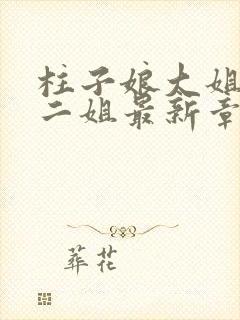 柱子娘大姐
二姐最新章
葬花